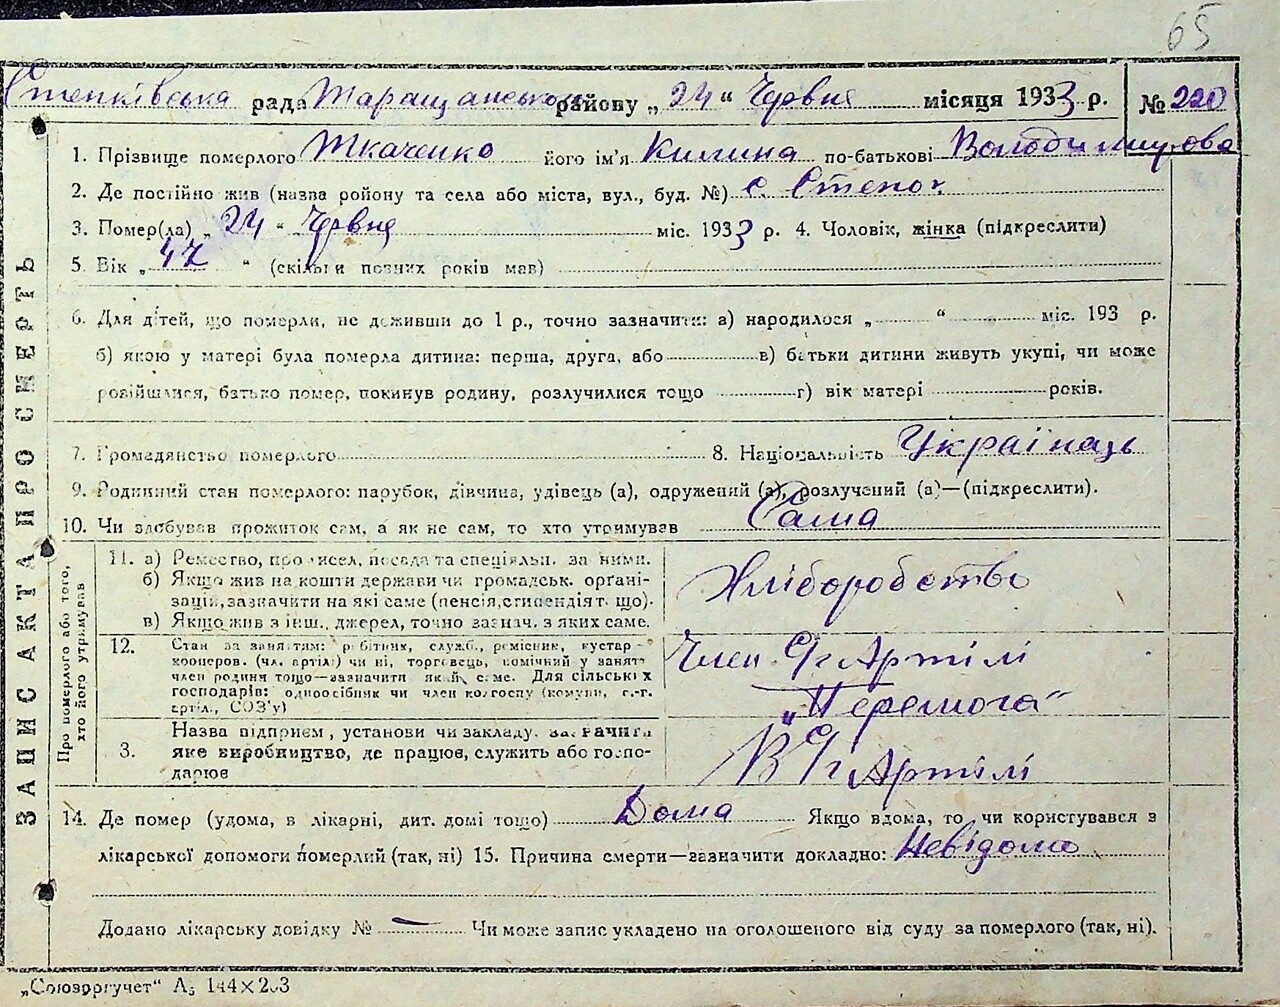 65
Степківська рада Таращанського району „24“ Червня місяця 1933 р. № 220
1. Прізвище померлого Ткаченко його ім'я Килина по-батькові Володимирова
2. Де постійно жив (назва ройону та села або міста, вул., буд. №) с Степок
3. Помер(ла) „24“ Червня міс. 1933 р. 4. Чоловік, жінка (підкреслити)
5. Вік „47“ (скільки повних років мав)
6. Для дітей, що померли, не доживши до 1 р., точно зазначити: а) народилося „ “ міс. 193 р.
б) якою у матері була померла дитина: перша, друга, або в) батьки дитини живуть укупі, чи може
розійшлися, батько помер, покинув родину, розлучилися тощо г) вік матері років.
7. Громадянство померлого 8. Національність Українець
9. Родинний стан померлого: парубок, дівчина, удівець (а), одружений (а), розлучений (а)—(підкреслити).
10. Чи здобував прожиток сам, а як не сам, то хто утримував Сама
ЗАПИС АКТА ПРО СМЕРТЬ
Про померлого або того, хто його утримував
11. а) Ремество, промисел, посада та спеціяльн. за ними.
б) Якщо жив на кошти держави чи громадськ. орґані-
зацій, зазначити на які саме (пенсія, стипендія т. що).
в) Якщо жив з інш. джерел, точно зазнач. з яких саме.
Хліборобство
12. Стан за заняттям: робітник, служб., ремісник, кустар -
кооперов. (чл. артілі) чи ні, торговець, помічний у занят.
член родини тощо—зазначити який саме. Для сільських
господарів: одноосібник чи член колгоспу (комуни, с.-г.
артілі, СОЗ'у)
Член С/г Артілі
„Перемога“
3. Назва підприєм, установи чи закладу. Зазначити
яке виробництво, де працює, служить або госпо-
дарює
В С/г Артілі
14. Де помер (удома, в лікарні, дит. домі тощо) Дома Якщо вдома, то чи користувався з
лікарської допомоги померлий (так, ні) 15. Причина смерти—зазначити докладно: Невідомо
Додано лікарську довідку № — Чи може запис укладено на оголошеного від суду за померлого (так, ні).
„Союзоргучет“ А5 144×203